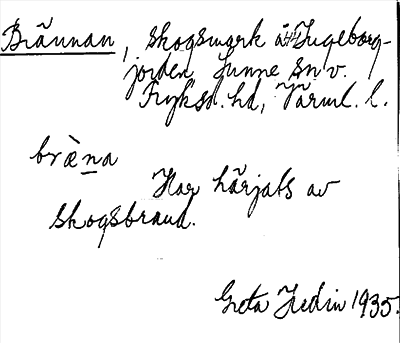 Brännan, skogsmark å Ingeborg-
jorden Sunne sn v.
Fryksd. hd, Värml. l.
bræ̀na
Har härjats av
skogsbrand.
Greta Hedin 1935.